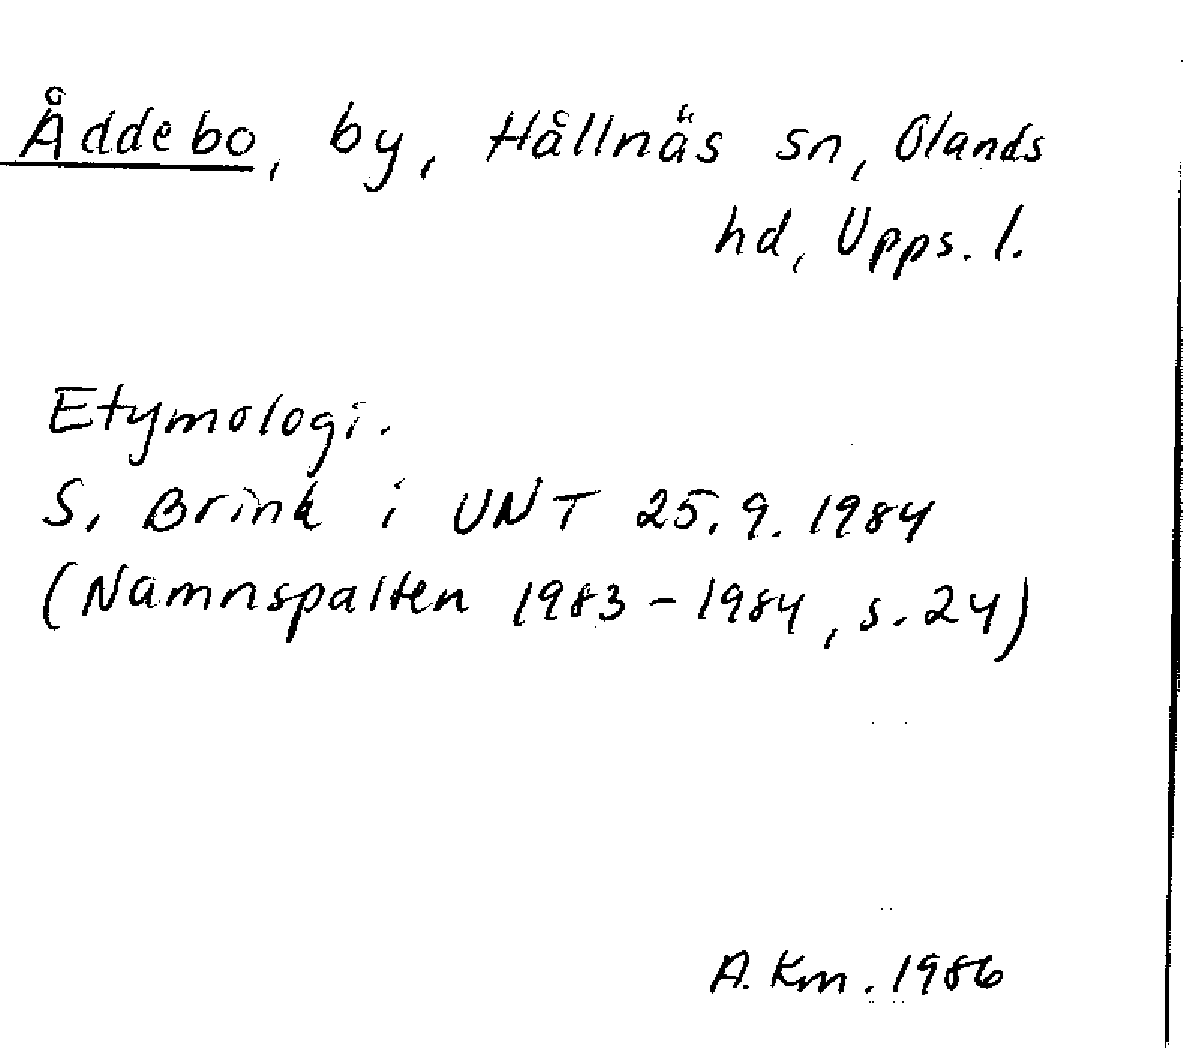 Åddebo, by, Hållnäs sn, Olands
hd, Upps. l.
Etymologi.
S. Brink i UNT 25.9.1984
(Namnspalten 1983-1984, s. 24)
A. Km. 1986